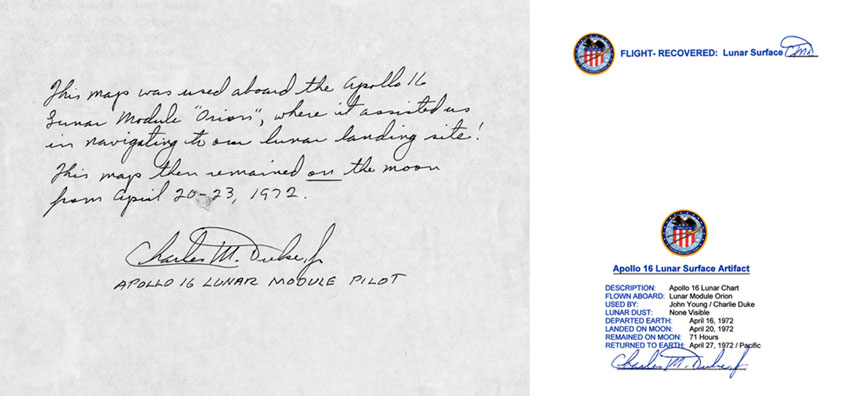 This map was used aboard the Apollo 16
Lunar Module "Orion", where it assisted us
in navigating to our lunar landing site!
This map then remained on the moon
from April 20-23, 1972.
Charles M. Duke, Jr
APOLLO 16 LUNAR MODULE PILOT
FLIGHT- RECOVERED: Lunar Surface
Apollo 16 Lunar Surface Artifact
DESCRIPTION: Apollo 16 Lunar Chart
FLOWN ABOARD: Lunar Module Orion
USED BY: John Young / Charlie Duke
LUNAR DUST: None Visible
DEPARTED EARTH: April 16, 1972
LANDED ON MOON: April 20, 1972
REMAINED ON MOON: 71 Hours
RETURNED TO EARTH: April 27, 1972 / Pacific
Charles M. Duke, Jr